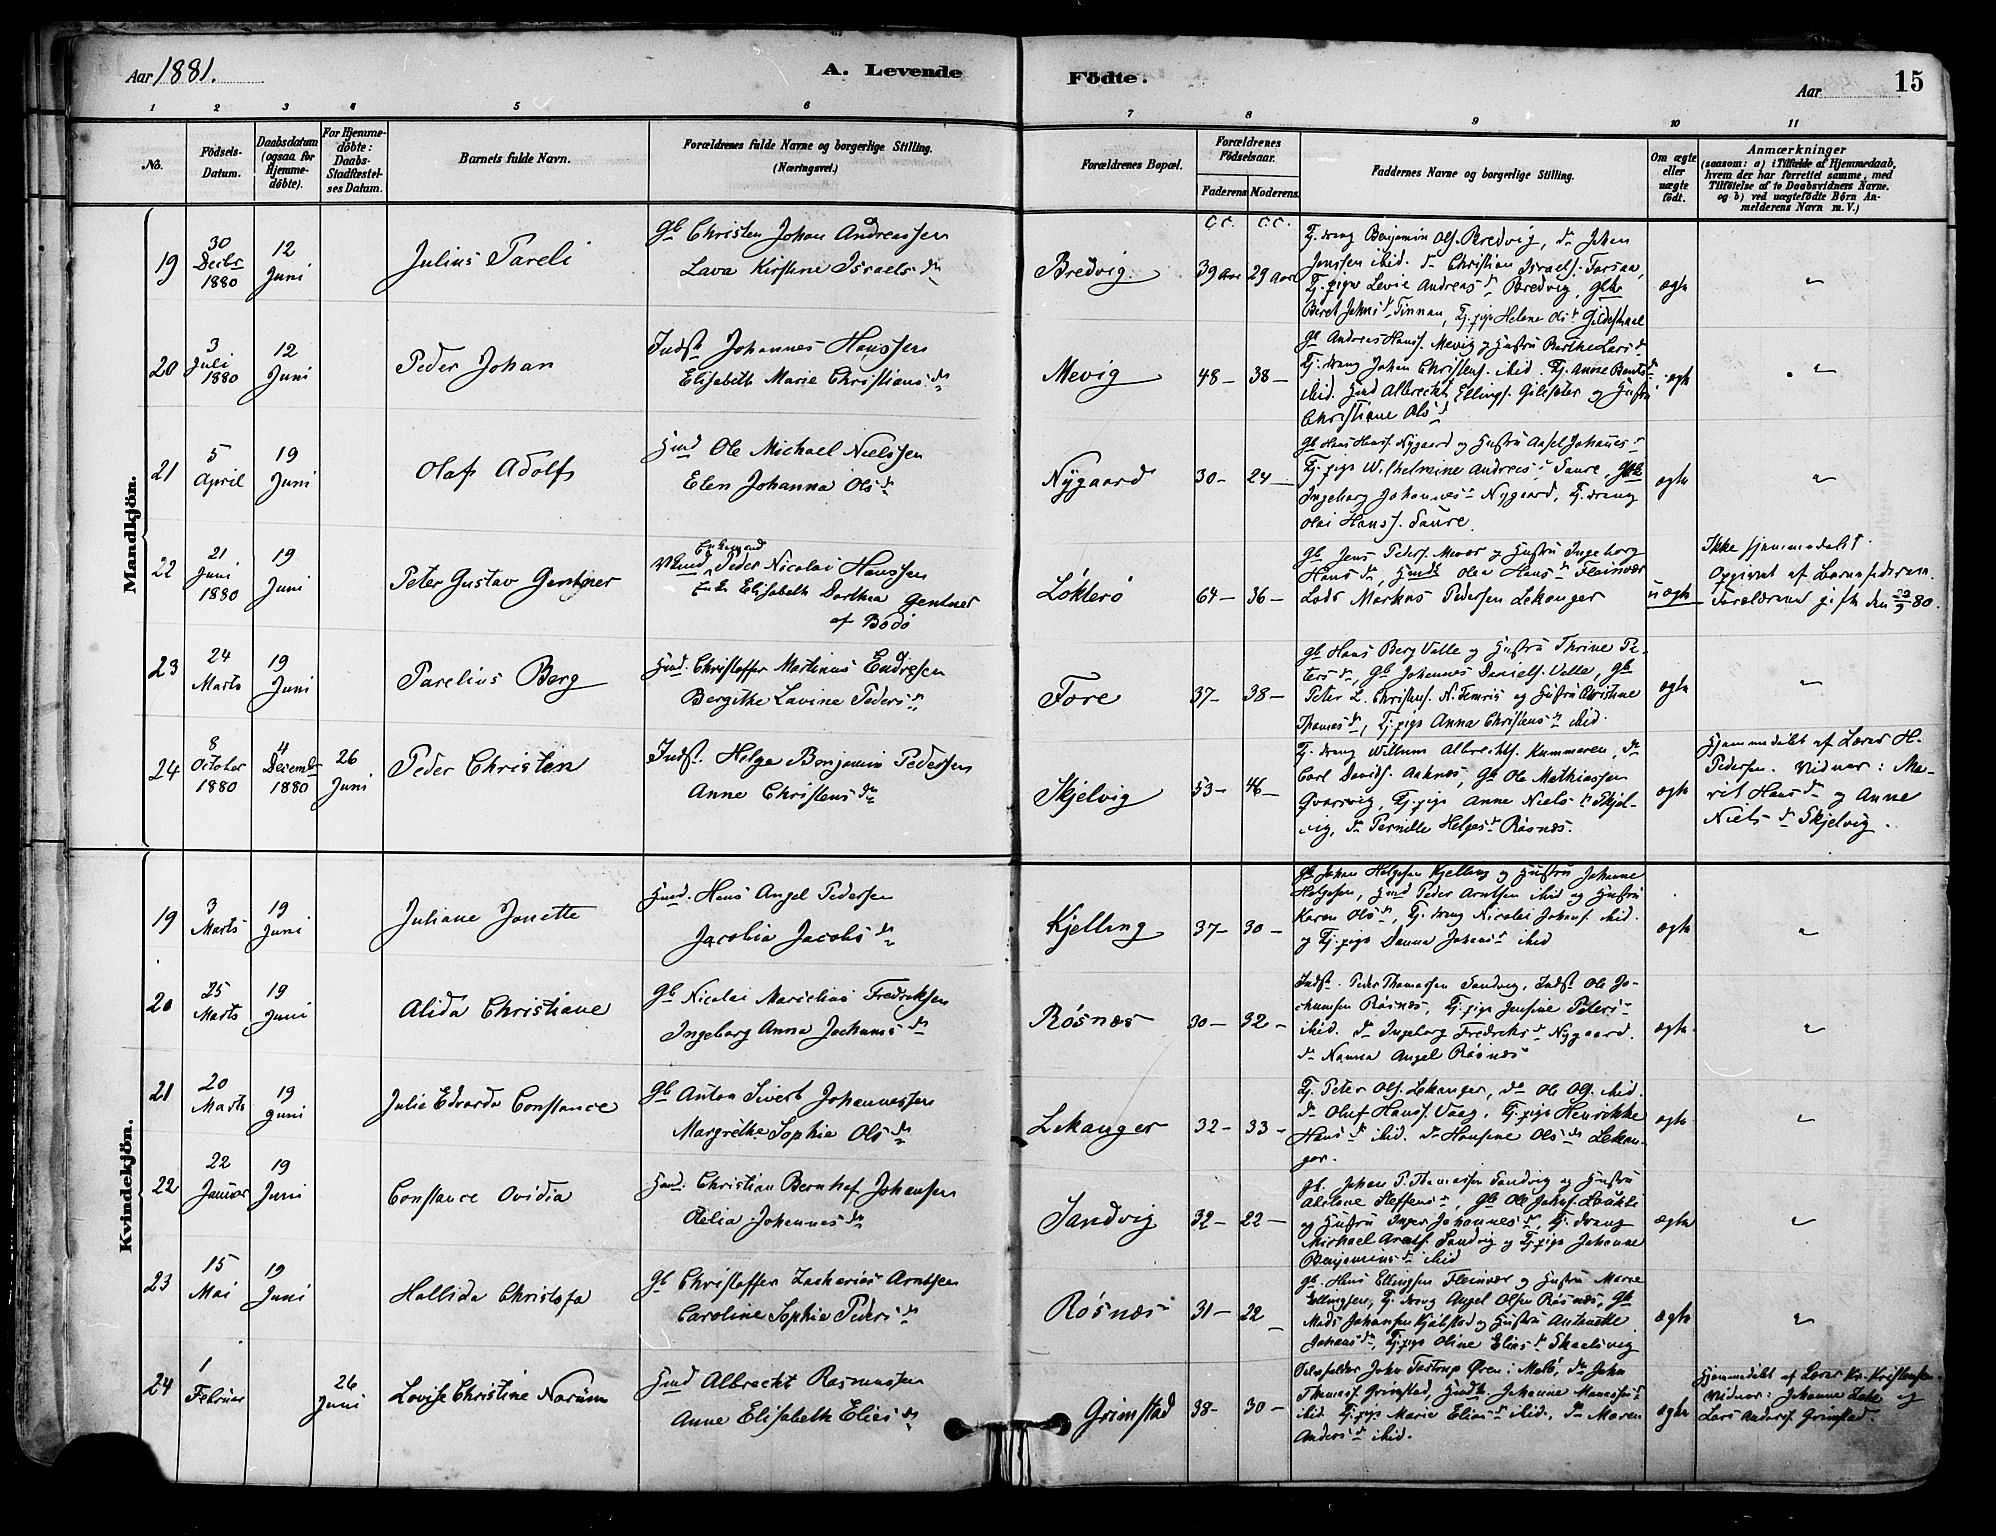 Aar 1881.
A. Levende Födte.
Aar 15
1 2 3 4 5 6 7 8 9 10 11
No.
Födsels-
Datum.
Daabsdatum
(ogsaa for
Hjemme-
döbte).
For Hjemme-
döbte:
Daabs-
Stadfæstel-
ses Datum.
Barnets fulde Navn.
Forældrenes fulde Navne og borgerlige Stilling.
(Næringsvei.)
Forældrenes Bopæl.
Forældrenes
Födselsaar.
Faderens. Moderens.
Faddernes Navne og borgerlige Stilling.
Om ægte
eller
uægte
födt.
Anmærkninger
(saasom: a) i Tilfælde af Hjemmedaab,
hvem der har forrettet samme, med
Tilföielse af to Daabsvidners Navne,
og b) ved uægtefödte Börn An-
melderens Navn m. V.)
Mandkjön.
19
30
Decbr
1880
12
Juni
Julius Pareli
Gb Christen Johan Andreassen
Lava Kirstine Israelsdr
Bredvig
cc. cc.
39 Aar 29 Aar
Tj.dreng Benjamin Ols. Bredvig, do Johan
Jenssen ibid. do Christian Israels. Forsaa,
Tj.pige Levie Andreasdr Bredvig, Gbk
Beret Johnsdr Finnan, Tj.pige Helene Olsdr Gildeskaal
ægte
"
20
3
Juli
1880
12
Juni
Peder Johan
Indst. Johannes Hanssen
Elisabeth Marie Christiansdr
Mevig
48 – 38 –
Gb Andreas Hans. Mevig og Hustru Berthe Larsdr
Tj.dreng Johan Christens. ibid. Tj. Anne Bentsdr
ibid. Hmd Albrecht Ellings. Gilseter og Hustru
Christiane Olsdr
ægte
"
21
5
April
19
Juni
Olaf Adolf
Hmd Ole Michael Nielssen
Elen Johanna Olsdr
Nygaard
30 – 24 –
Gb Hans Hans. Nygaard og Hustru Axsel Johannesdr
Tj.pige Wilhelmine Andreasdr Saure, Gbk
Ingeborg Johannesdr Nygaard, Tj.dreng
Olai Hans. Saure.
ægte
"
22
21
Juni
1880
19
Juni
Peter Gustav Gentner
Enkemand
Peder Nicolai Hanssen
Enke Elisabeth Dorthea Gentner
af Bodö
Lökterö
64 – 36 –
Gb Jens Peders. Mevær og Hustru Ingeborg
Hansdr, Hmdk Olea Hansdr Fleinvær
Lods Markus Pedersen Lekanger
uægte
Ikke hjemmedøbt.
Opgivet af Barnefaderen.
Forældrene gifte den 80.
23
24
Marts
19
Juni
Parelius Berg
Hmd. Christoffer Martinus Endresen
Bergithe Lavine Pedersdr
Fore
37 – 38 –
Gb Hans Berg Valle og Hustru Thrine Pe-
tersdr, Gb Johannes Daniels. Valle, Gb
Peter L. Christens. N. Femris og Hustru Christine
Thomesdr, Tj.pige Anna Christensdr ibid.
ægte
"
24
8
October
1880
4
Decembr
1880
26
Juni
Peder Christen
Indst. Helge Benjamin Pedersen
Anne Christensdr
Skjelvig
53 – 46 –
Tj.dreng Willum Albrechts. Kunmoren, do
Carl Davids. Aaknes, Gb Ole Mathiassen
Qvarsvig, Tj.pige Anne Nielsdr Skjel-
vig, do Pernille Helgesdr Rösnæs.
ægte
Hjemmedøbt af Lærer H.
Pedersen. Vidner: Ma-
rit Hansdr og Anne
Nielsdr Skjelvig.
Kvindekjön.
19
3
Marts
19
Juni
Juliane Jonette
Hmd. Hans Angel Pedersen
Jacobia Jacobsdr
Kjelling
37 – 30 –
Gb Johan Helgesen Kjelling og Hustru Johanne
Helgesen, Hmd Peder Arntsen ibid og Hustru
Karen Olsdr, Tj.dreng Nicolai Johans. ibid.
og Tj.pige Danna Johansdr ibid
ægte
"
20
25
Marts
19
Juni
Alida Christiane
Gb Nicolai Marselius Fredriksen
Ingeborg Anna Jochumsdr
Rösnæs
30 – 32 –
Indst. Peder Thomassen Sandvig, Indst Ole Jo-
chumsen Rösnæs, Tj.pige Jensine Petersdr
ibid. do Ingeborg Fredriksdr Nygaard.
do Nanna Angel Rösnæs
ægte
"
21
20
Marts
19
Juni
Julie Edvarda Constance
Gb Anton Sivert Johannessen
Margrethe Sophie Olsdr
Lekanger
32 – 33 –
Tj. Peter Ols. Lekanger, do Ole Ols. ibid.
do Oluf Hans. Vaag, Tj.pige Henrikke
Hansdr ibid. do Hansine Olsdr Lekan-
ger.
ægte
"
22
22
Januar
19
Juni
Constance Ovidia
Hmd. Christian Bernhof Johansen
Olelia Johannesdr
Sandvig
32 – 22 –
Gb. Johan P. Thomassen Sandvig og Hustru
Abelone Steffensdr, Gb Ole Johs. Laukli
og Hustru Inger Johannesdr, Tj.dreng
Michael Arolf. Sandvig og Tj.pige Johanne
Benjaminsdr ibid
ægte
"
23
15
Mai
19
Juni
Hallida Christofa
Gb Christoffer Zacharias Arntsen
Caroline Sophie Pedersdr
Rösnæs
31 – 22 –
Gb. Hans Ellingsen Fleinvær og Hustru Maren
Ellingsen, Tj.dreng Angel Olsen Rösnæs, Gb
Mads Johansen Kjølstad og Hustru Antonette
Johansdr, Tj.pige Oline Eliasdr Skaalsvig
ægte
"
24
1
Februar
26
Juni
Lovise Christine Norum
Hmd Albrecht Rasmussen
Anne Elisabeth Eliasdr
Grimstad
38 – 30 –
John Tostrup Øren i Melö, do John
Thomas. Grimstad, Hmdk. Johanne
ibid Tj.pige Marie Eliasdr ibid, do Maren
Andersdr ibid.
ægte
Hjemmedøbt af Lærer Kr. Kristensen.
Vidner: Johanne Lake og
Lars Anders. Grimstad.